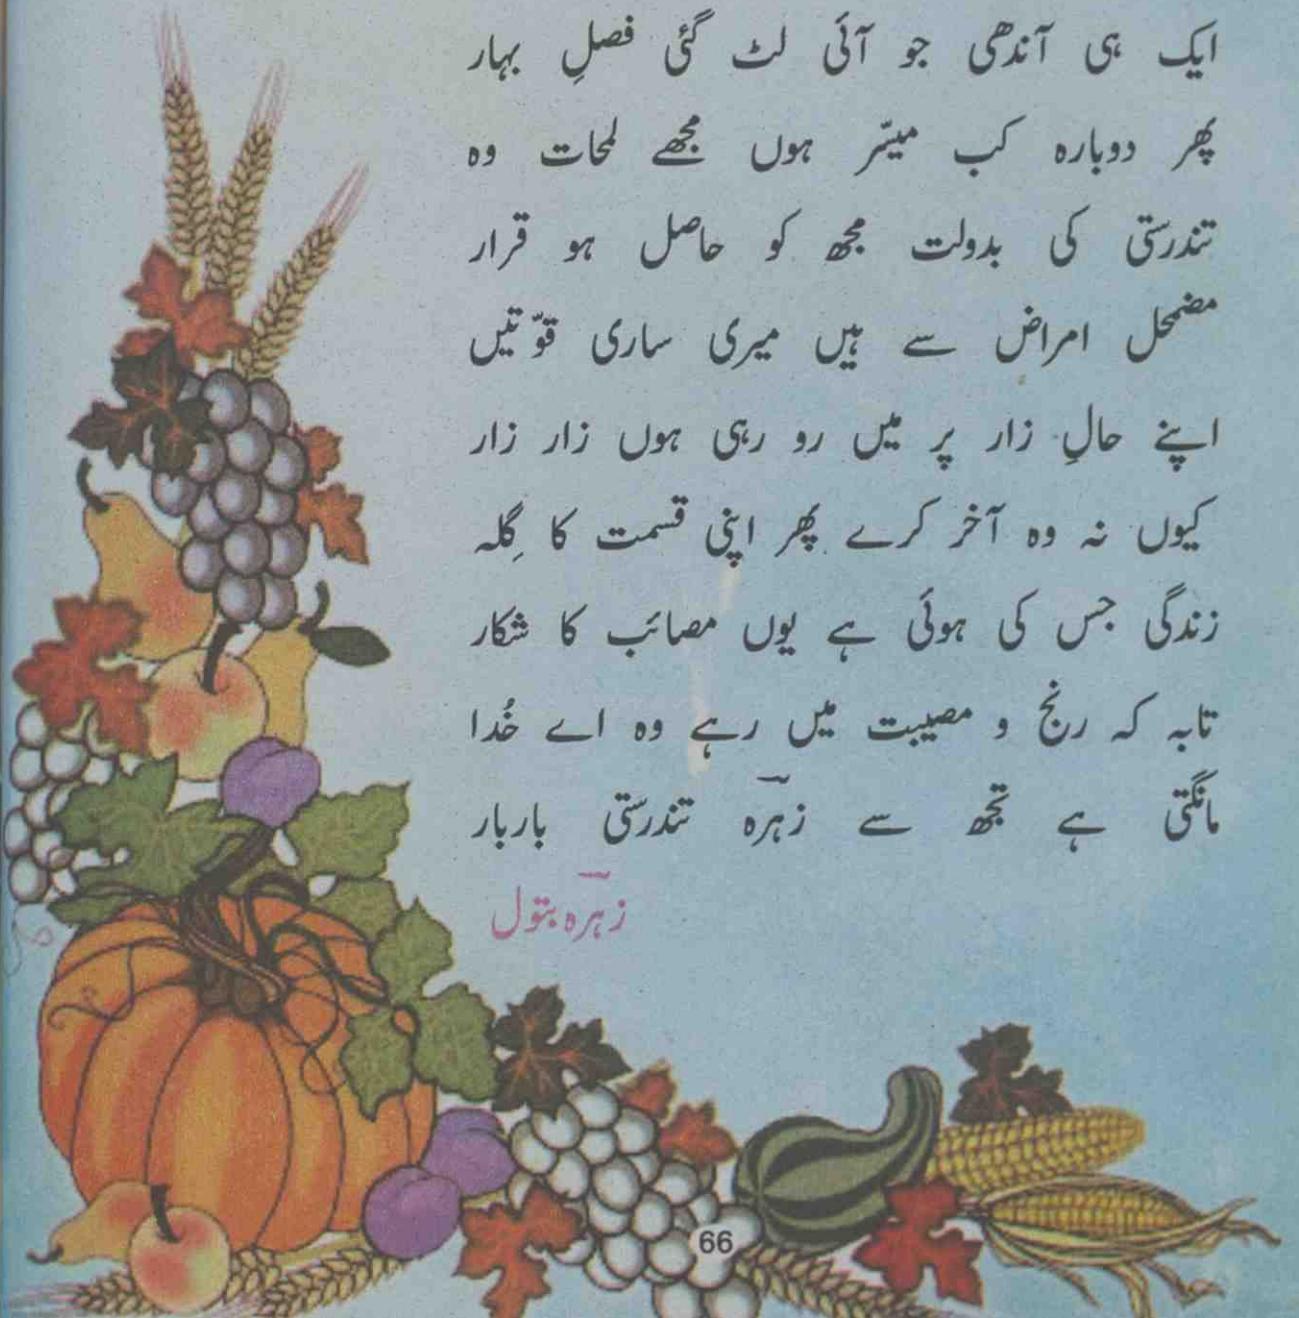 ایک ہی آندھی جو آئی لٹ گئی فصلِ بہار
پھر دوبارہ کب میسّر ہوں مجھے لمحات وہ
تندرستی کی بدولت مجھ کو حاصل ہو قرار
مضمحل امراض سے ہیں میری ساری قوّتیں
اپنے حالِ زار پر میں رو رہی ہوں زار زار
کیوں نہ وہ آخر کرے پھر اپنی قسمت کا گِلہ
زندگی جس کی ہوئی ہے یوں مصائب کا شکار
تابہ کہ رنج و مصیبت میں رہے وہ اے خُدا
مانگتی ہے تجھ سے زہرؔہ تندرستی باربار
زہرؔہ بتول
66